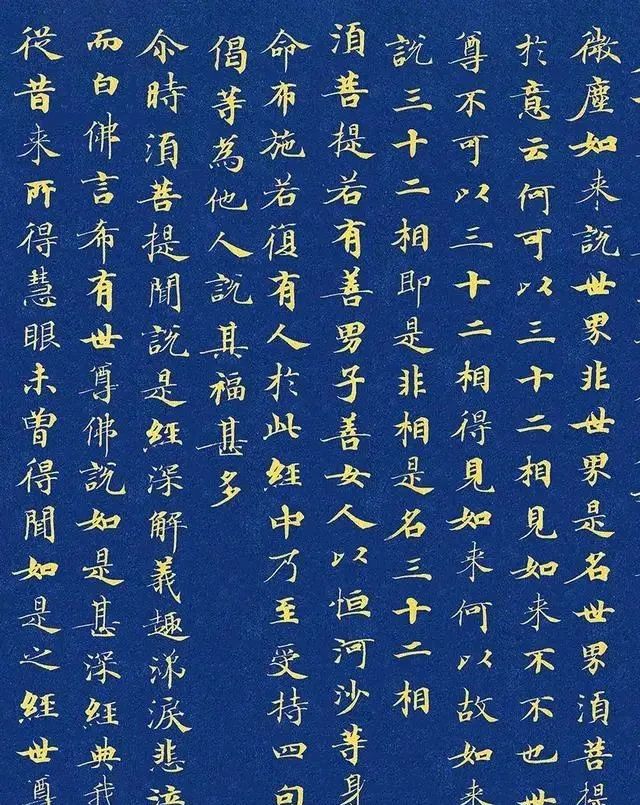 微塵如来說世界非世界是名世界湏菩提
於意云何可以三十二相見如来不不也世
尊不可以三十二相得見如来何以故如来
說三十二相即是非相是名三十二相
湏菩提若有善男子善女人以恒河沙等身
命布施若復有人於此經中乃至受持四句
偈等為他人說其福甚多
尒時湏菩提聞說是經深解義趣涕淚悲泣
而白佛言希有世尊佛說如是甚深經典我
従昔来所得慧眼未曾得聞如是之經世尊